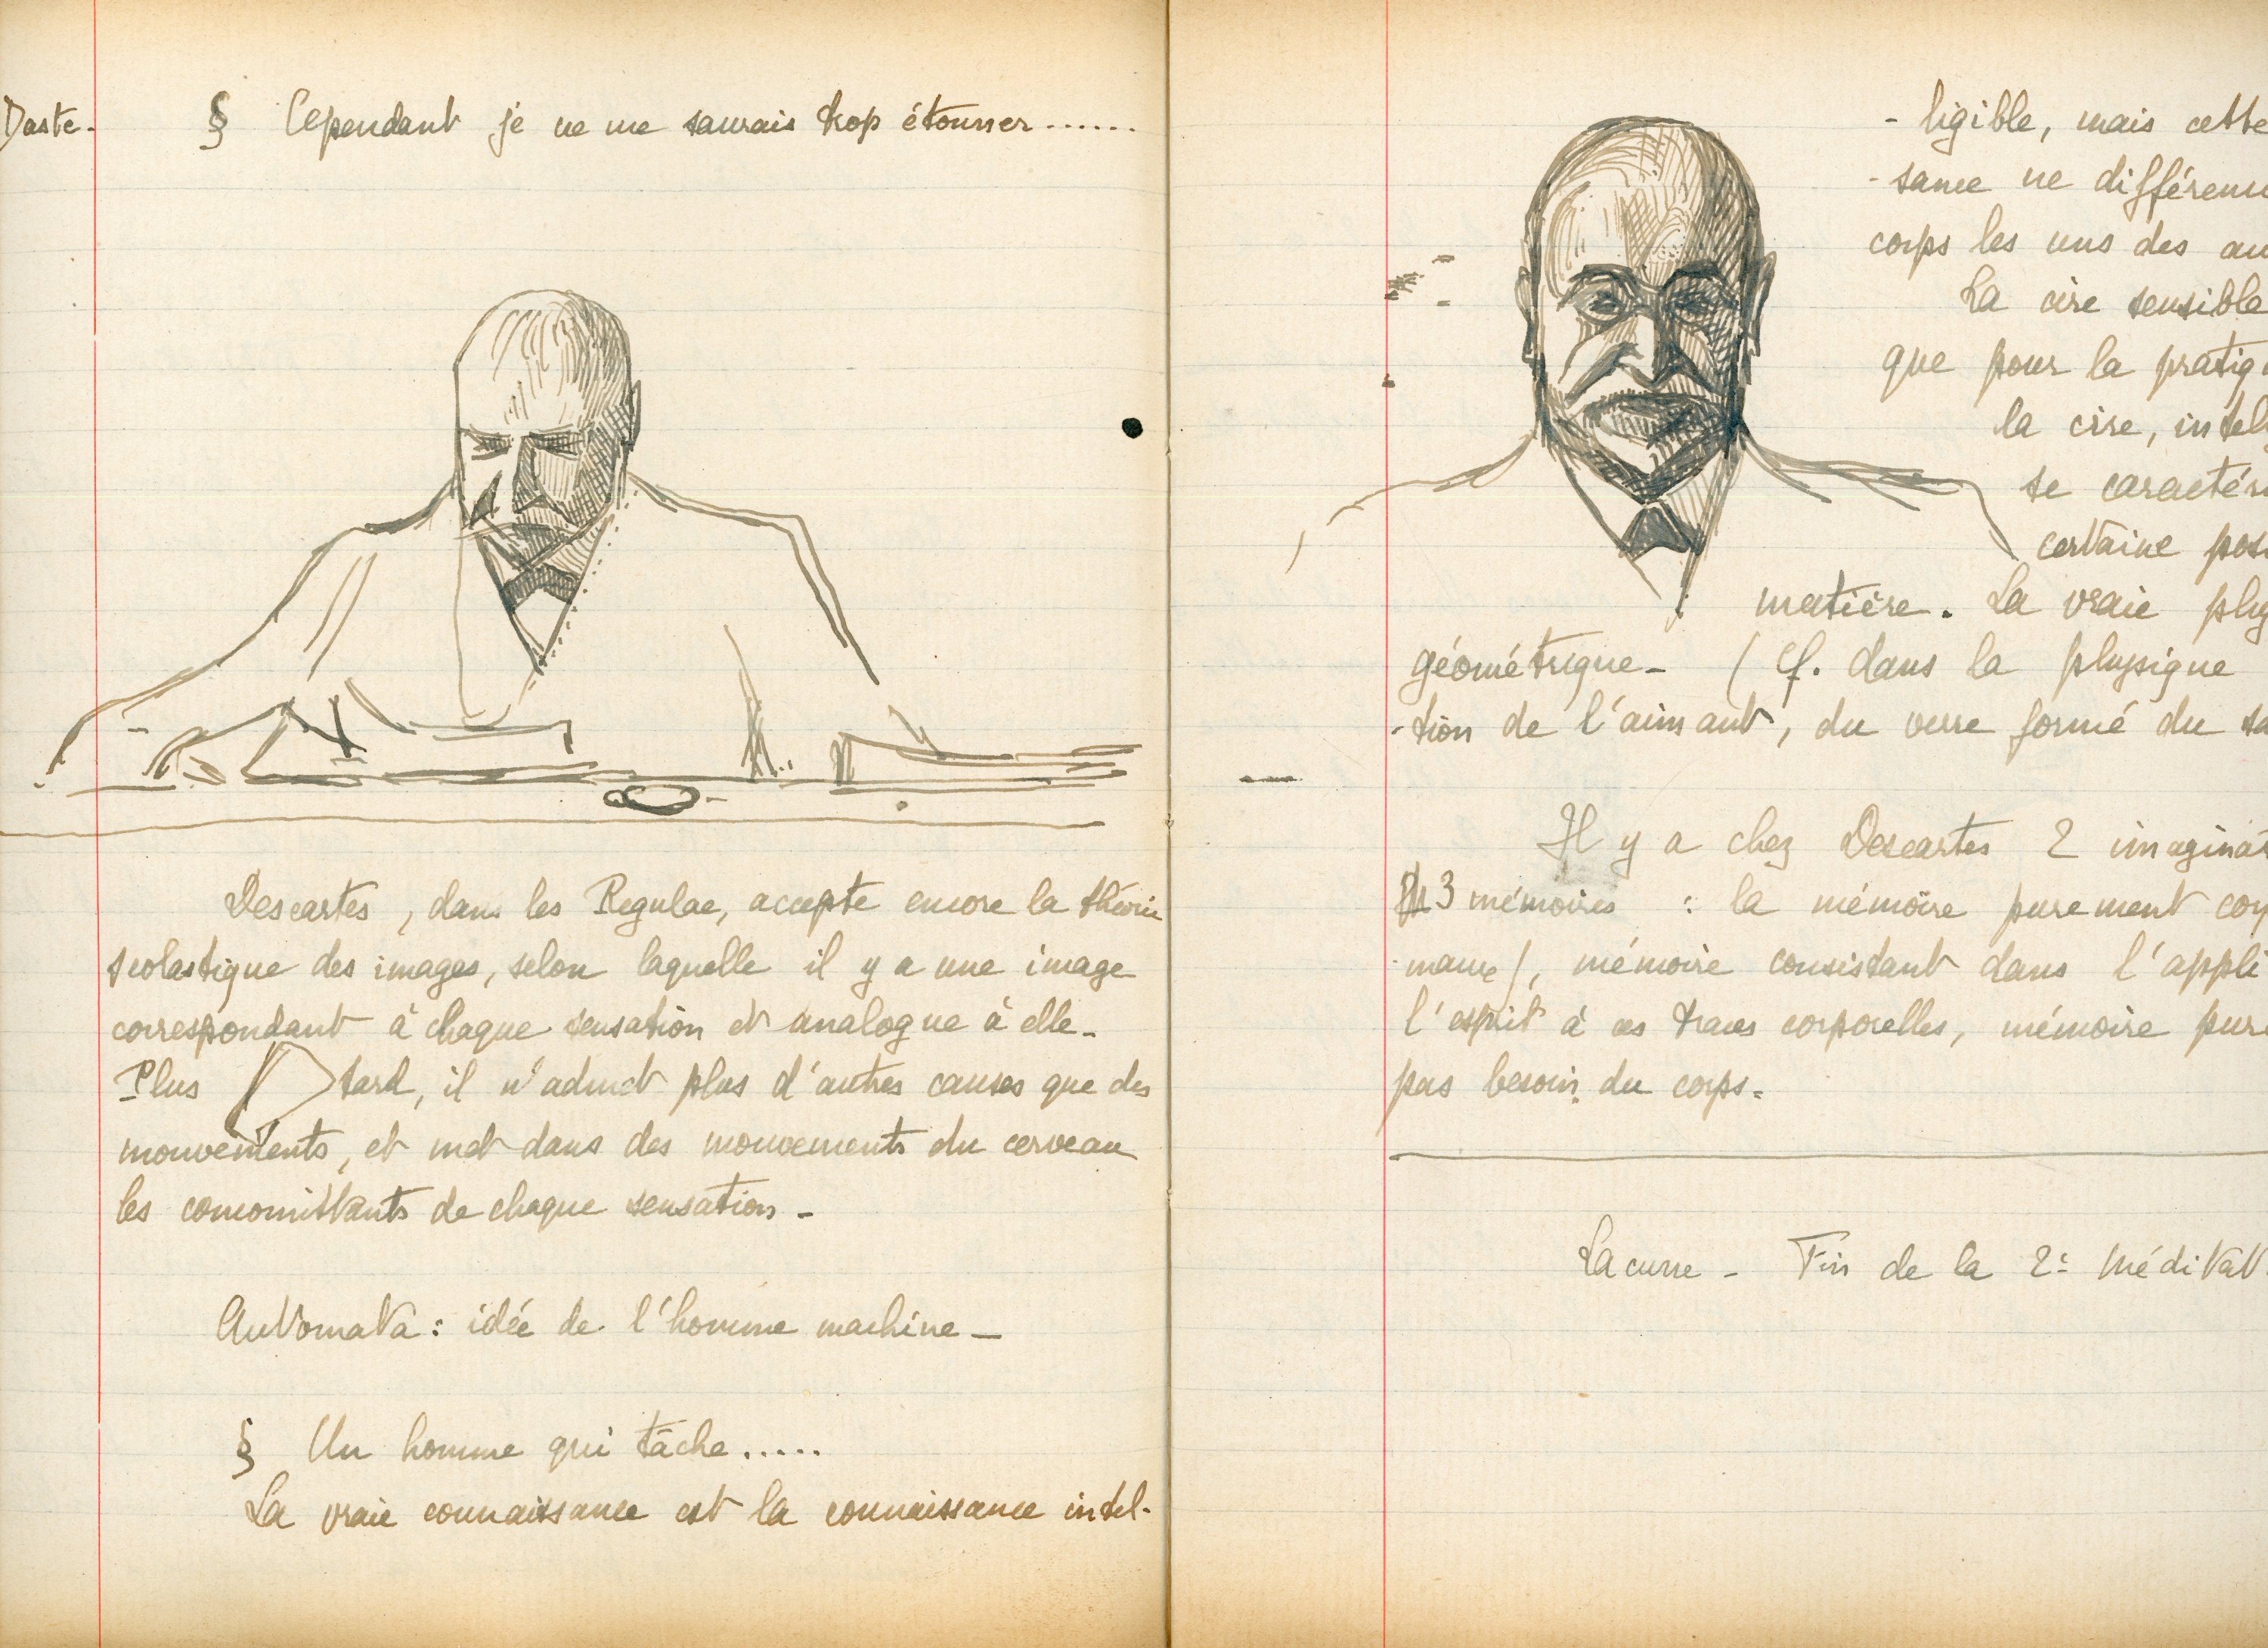 Daste.
§ Cependant je ne me saurais trop étonner......
Descartes, dans les Regulae, accepte encore la théorie
scolastique des images, selon laquelle il y a une image
correspondant à chaque sensation et analogue à elle.
Plus tard, il n'admet plus d'autres causes que des
mouvements, et met dans des mouvements du cerveau
les concomittants de chaque sensation -
Automata : idée de l'homme machine -
§ Un homme qui tâche.....
La vraie connaissance est la connaissance intel-
- ligible, mais cette
- sance ne différenc
corps les uns des au
La cire sensible
que pour la pratiq
la cire, intel
se caractér
certaine pos
matière. La vraie phy
géométrique - (Cf. dans la physique
-tion de l'aimant, du verre formé du sa
Il y a chez Descartes 2 imagina
3 mémoires : la mémoire purement cor
maux), mémoire consistant dans l'appli
l'esprit à ces traces corporelles, mémoire pure
pas besoin du corps.
Lacune - Fin de la 2e Méditat